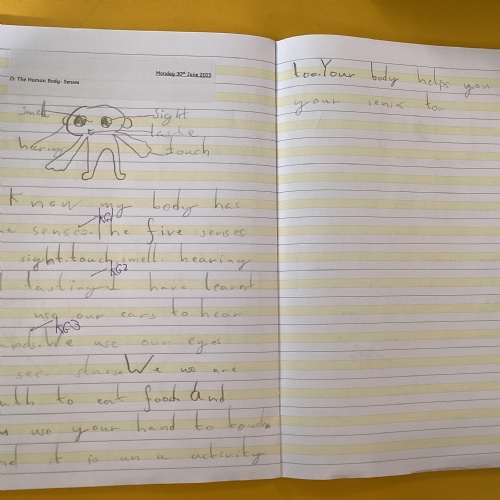 O: The Human Body- Senses
Monday 30th June 2025
Smell
Sight
taste
hearing
touch
know my body has
senses. The five senses
KG1
sight. touch. smell. hearing
tasting. I have learnt
KG2
use our ears to hear
KG3
We use our eyes
see stars We use are
to eat food. And
use your hand to touch
it is an a activity
too. Your body helps you
your sense too.